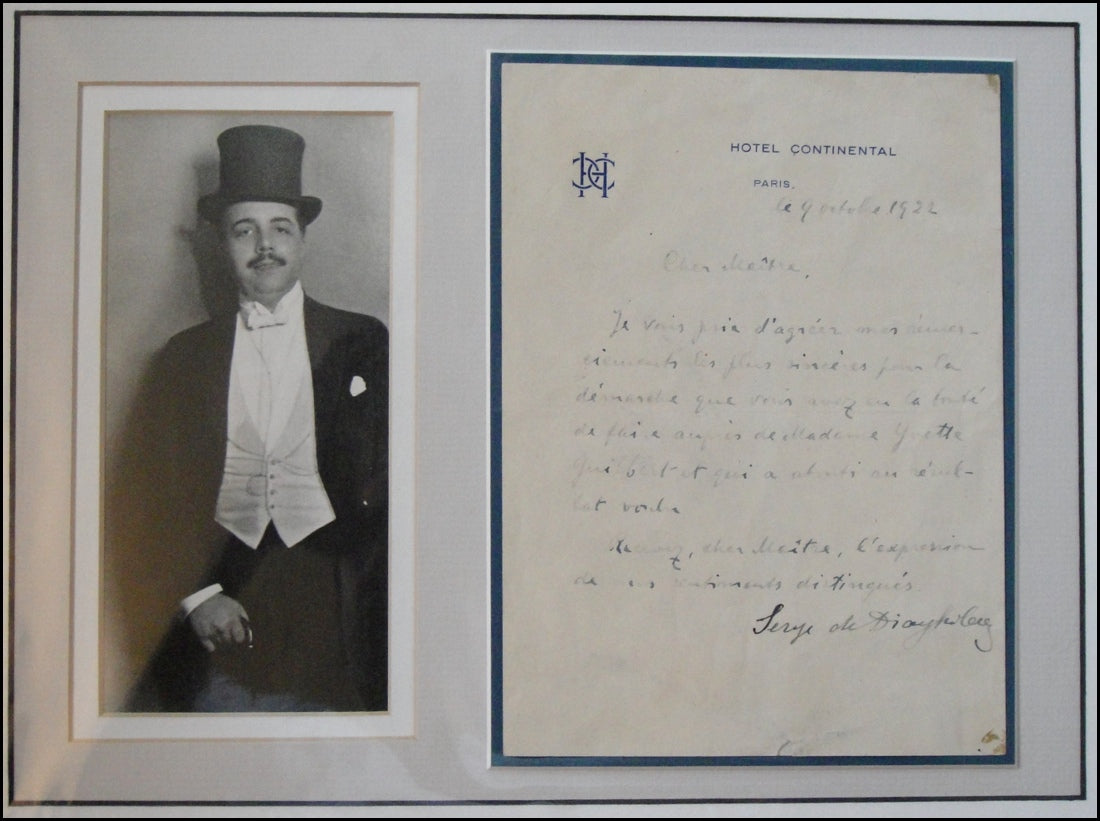 HC
HOTEL CONTINENTAL
PARIS,
le 9 octobre 1922
Cher Maître,
Je vous prie d'agréer mes remer-
ciements les plus sincères pour la
démarche que vous avez eu la bonté
de faire auprès de Madame Yvette
Guilbert et qui a abouti au résul-
tat voulu
Recevez, cher Maître, l'expression
de mes sentiments distingués.
Serge de Diaghilew